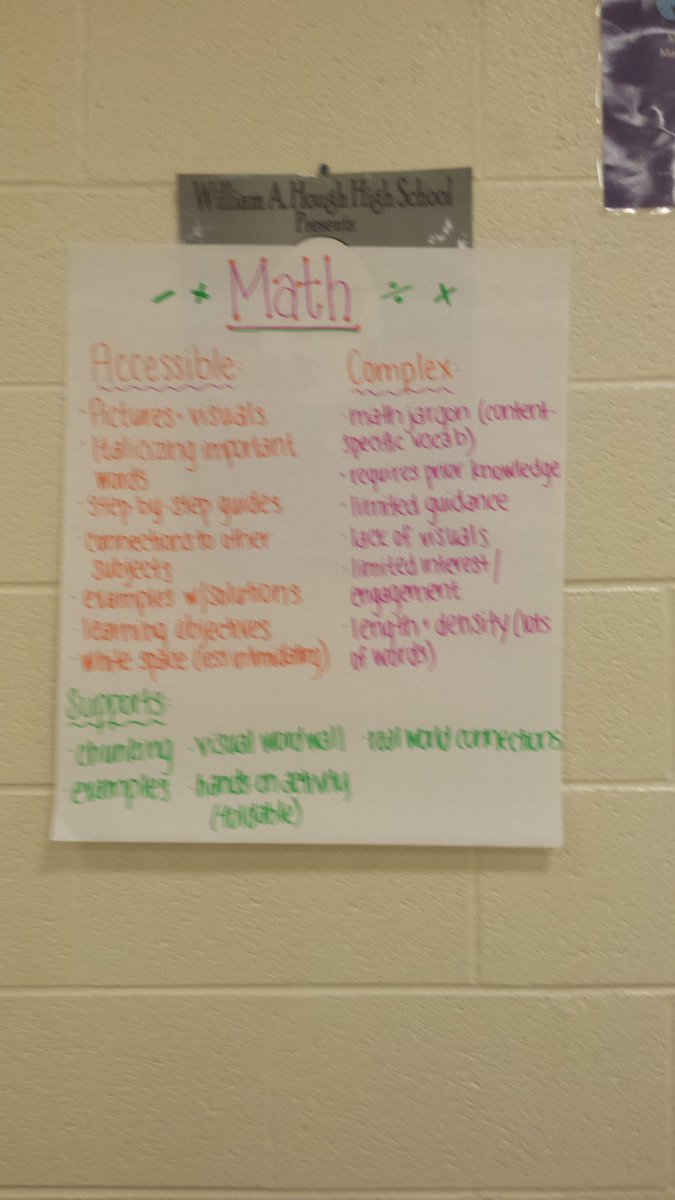 William A. Hough High School
Presents
- + Math ÷ x
Accessible:
- Pictures + visuals
- Italicizing important
words
- step by step guides
- connections to other
subjects
- examples w/solutions
- learning objectives
- white space (less intimidating)
Complex:
- math jargon (content-
specific vocab)
- requires prior knowledge
- limited guidance
- lack of visuals
- limited interest/
engagement
- length + density (lots
of words)
Supports:
- chunking
- examples
- visual word wall
- hands-on activity
(foldable)
- real world connections